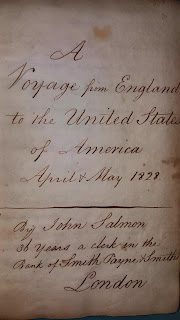 A
Voyage from England
to the United State
of America
April & May 1828
By John Salmon
36 Years a clerk in the
Bank of Smith Payne & Smith
London